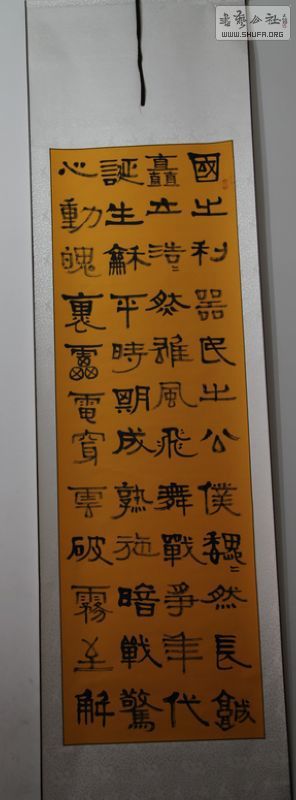 國之利器民之公僕巍〻然長𩫨
矗立浩〻然雄風飛舞戰爭年代
誕生龢平時期成熟施暗戰驚
心動魄裏雷電穿雲破霧至解
书艺公社
WWW.SHUFA.ORG